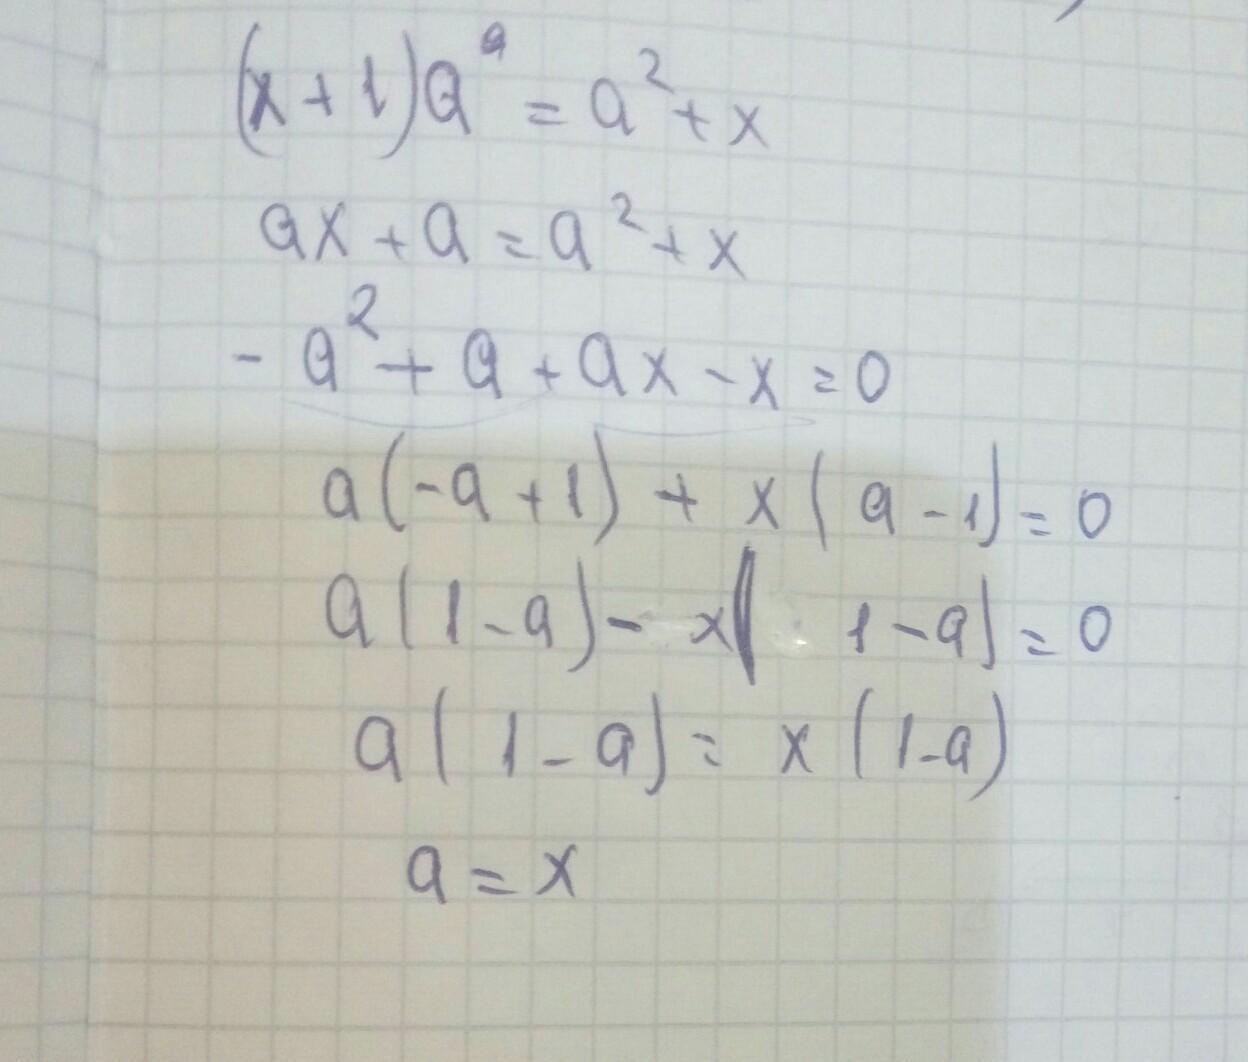 (x + 1)a^a = a² + x
ax + a = a² + x
- a² + a + ax - x = 0
a(-a + 1) + x(a - 1) = 0
a(1 - a) - x(1 - a) = 0
a(1 - a) = x(1 - a)
a = x